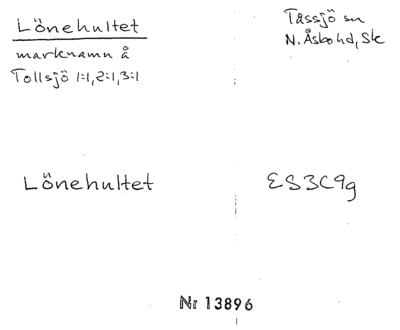 Lönehultet
marknamn å
Tollsjö 1:1, 2:1, 3:1
Tåssjö sn
N. Åsbo hd, Sk
Lönehultet
ES3C9g
Nr 13896